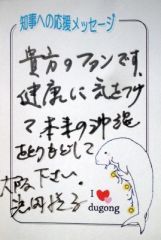 知事への応援メッセージ
貴方のファンです。
健康に気をつけ
て本来の沖縄
をとりもどして
下さい。
大阪
I ♥
dugong